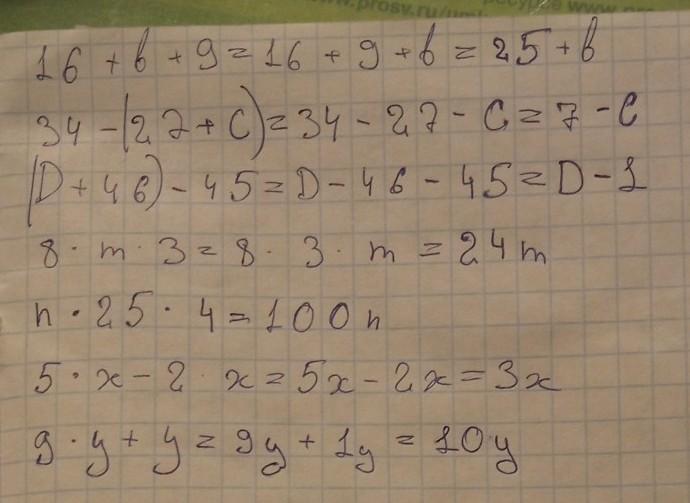 www.prosv.ru/um
16 + b + 9 = 16 + 9 + b = 25 + b
34 - (27 + C) = 34 - 27 - C = 7 - C
(D + 46) - 45 = D - 46 - 45 = D - 1
8 · m · 3 = 8 · 3 · m = 24m
n · 25 · 4 = 100n
5 · x - 2 · x = 5x - 2x = 3x
9 · y + y = 9y + 1y = 10y